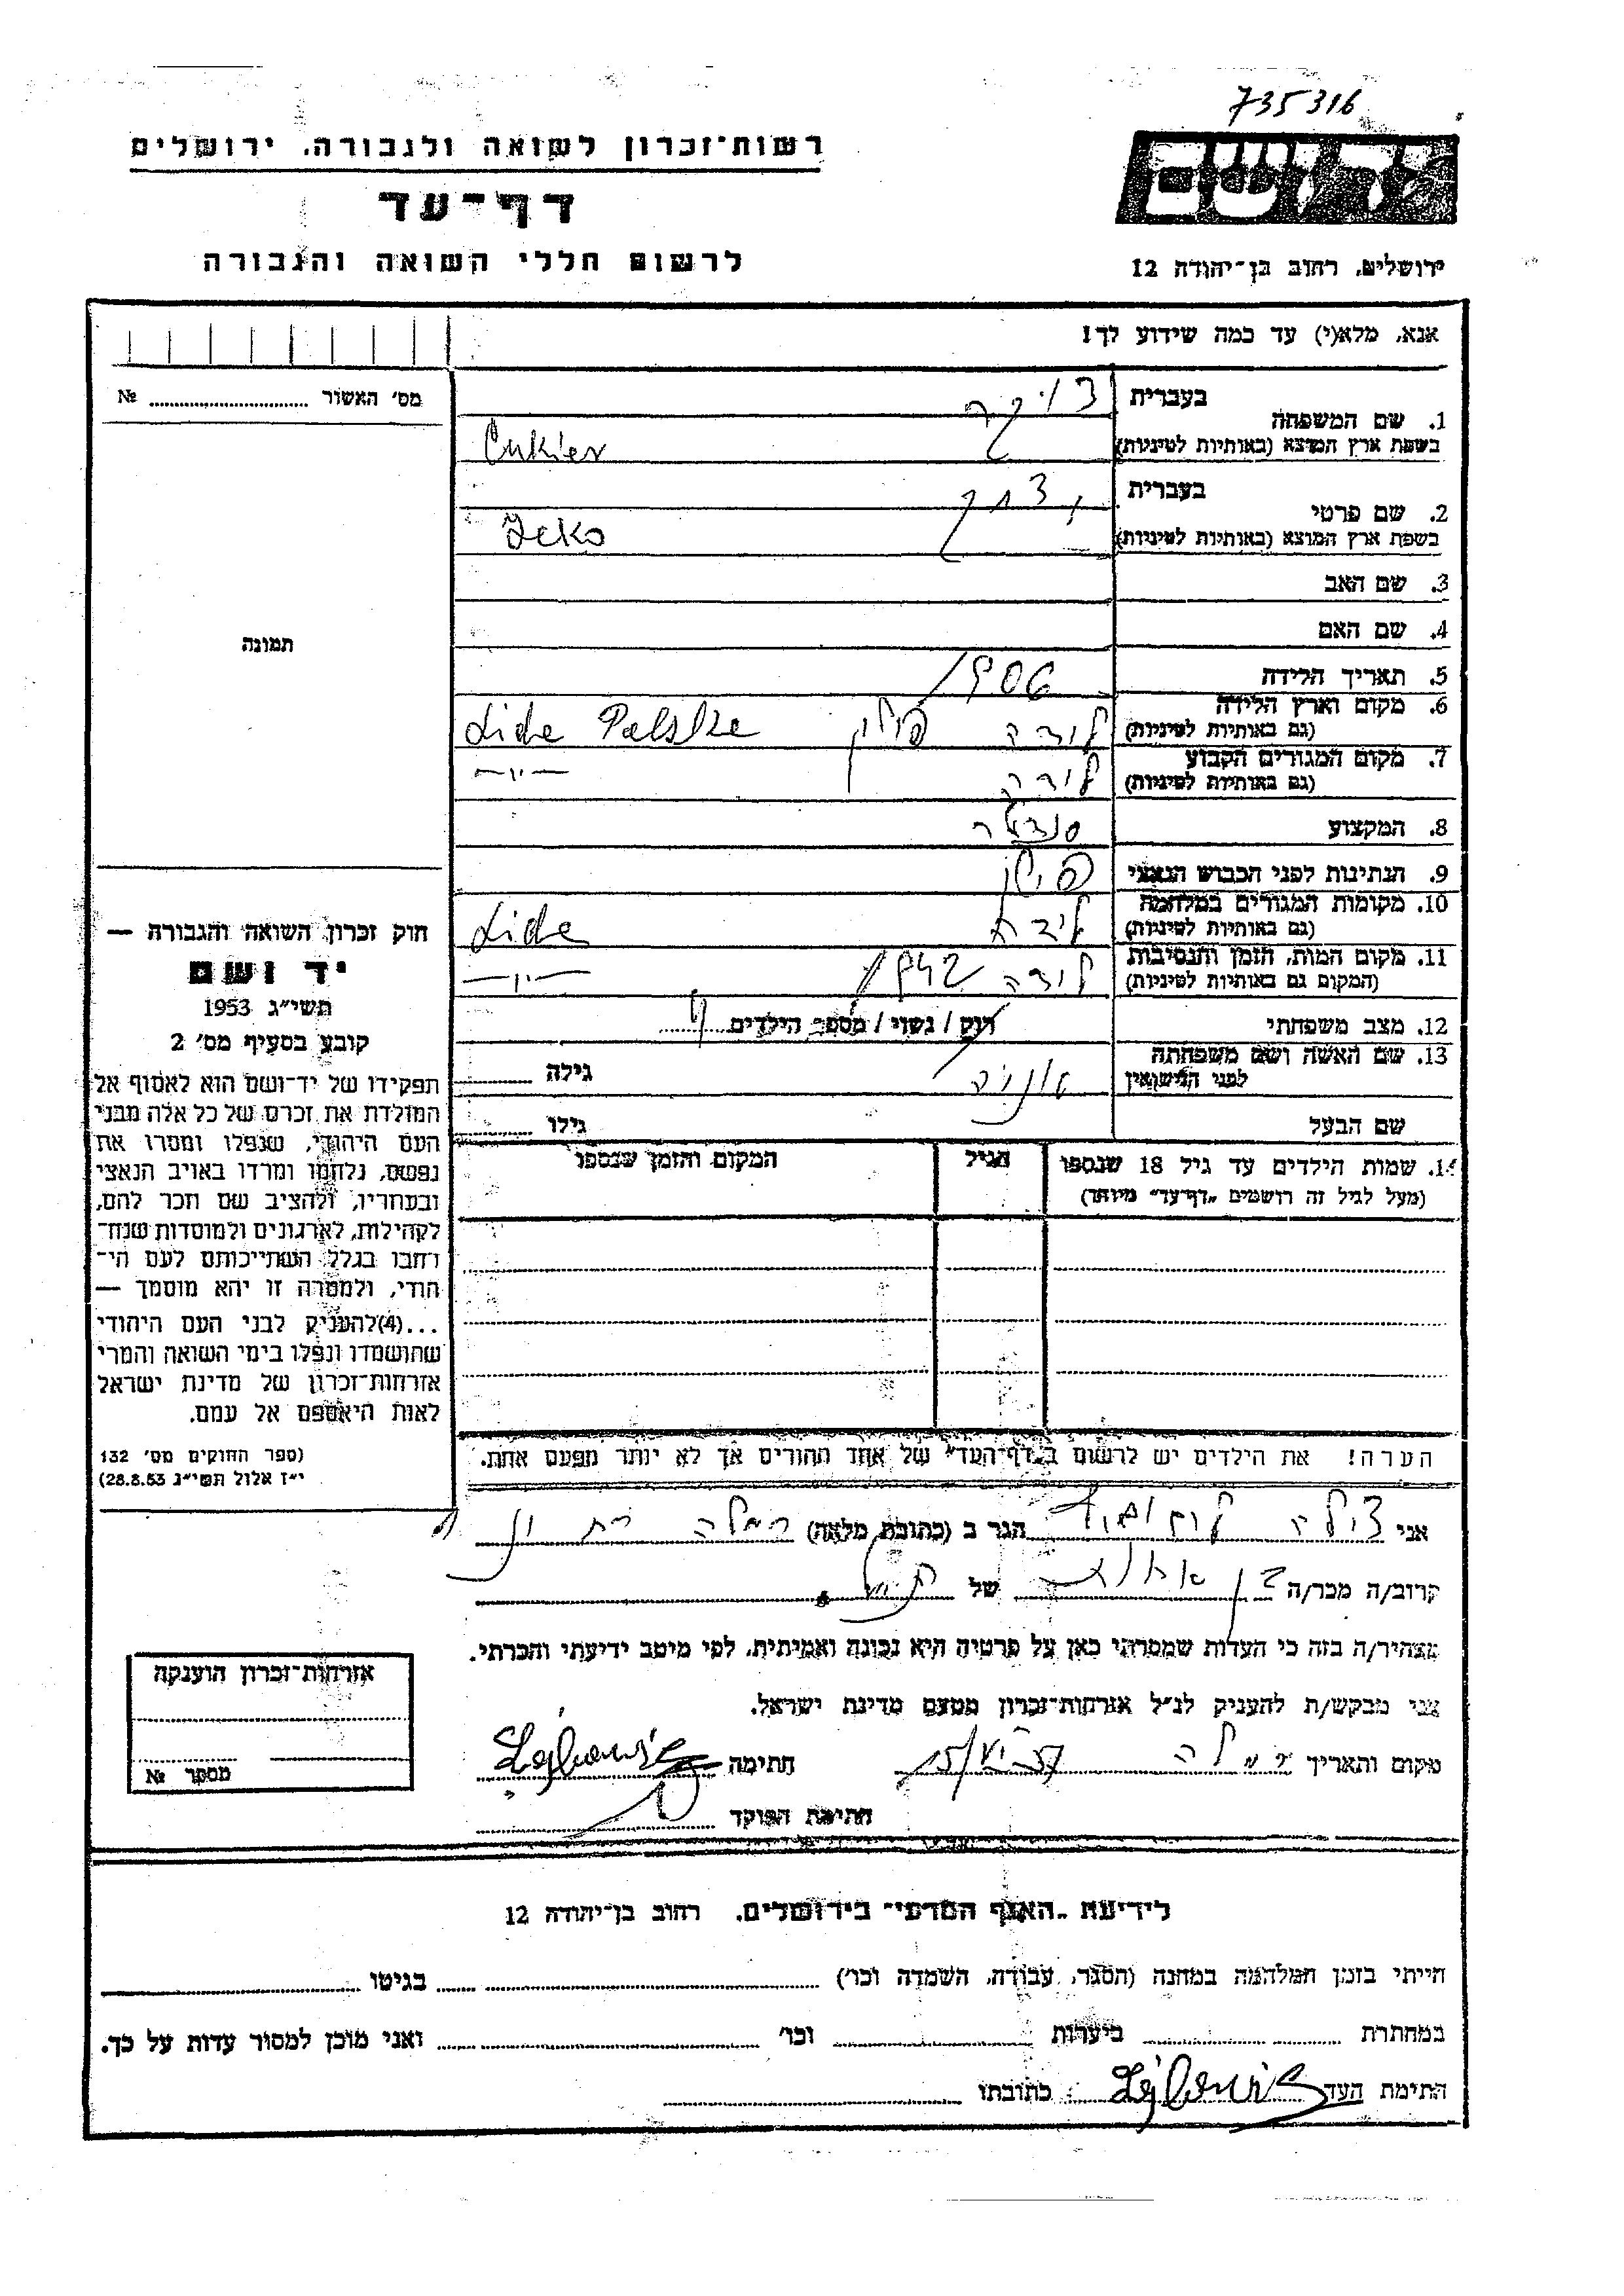 735316
רשות־זכרון לשואה ולגבורה, ירושלים
יד ושם
דף־עד
לרשום חללי השואה והגבורה
ירושלים, רחוב בן־יהודה 12
אנא, מלא(י) עד כמה שידוע לך!
מס' האשור № 
1. שם המשפחה
בעברית
בשפת ארץ המוצא (באותיות לטיניות) Cukier
2. שם פרטי
בעברית יצחק
בשפת ארץ המוצא (באותיות לטיניות)
3. שם האב
4. שם האם
תמונה
5. תאריך הלידה 1906
6. מקום וארץ הלידה
(גם באותיות לטיניות) לידה פולין
7. מקום המגורים הקבוע
(גם באותיות לטיניות) לידה —״—
8. המקצוע סנדלר
9. הנתינות לפני הכבוש הנאצי
10. מקומות המגורים במלחמה
(גם באותיות לטיניות) לידה
11. מקום המות, הזמן והנסיבות
(המקום גם באותיות לטיניות) לידה 1942 —״—
12. מצב משפחתי רוק / נשוי / מספר הילדים
13. שם האשה ושם משפחתה
לפני הנישואין גילה
שם הבעל גילו
14. שמות הילדים עד גיל 18 שנספו
(מעל לגיל זה רושמים „דף־עד" מיוחד)
הגיל
המקום והזמן שנספו
חוק זכרון השואה והגבורה —
יד ושם
תשי״ג 1953
קובע בסעיף מס' 2
תפקידו של יד־ושם הוא לאסוף אל
המולדת את זכרם של כל אלה מבני
העם היהודי, שנפלו ומסרו את
נפשם, נלחמו ומרדו באויב הנאצי
ובעוזריו, ולהציב שם וזכר להם,
לקהילות, לארגונים ולמוסדות שנח־
רבו בגלל השתייכותם לעם הי־
הודי, ולמטרה זו יהא מוסמך —
...(4)להעניק לבני העם היהודי
שהושמדו ונפלו בימי השואה והמרי
אזרחות־זכרון של מדינת ישראל
לאות היאספם אל עמם.
(ספר החוקים מס' 132
י״ז אלול תשי״ג 28.8.53)
הערה! את הילדים יש לרשום ב„דף־העד" של אחד ההורים אך לא יותר מפעם אחת.
אני צילה הגר ב (כתובת מלאה) רמלה
קרוב/ה מכר/ה של
מצהיר/ה בזה כי העדות שמסרתי כאן על פרטיה היא נכונה ואמיתית, לפי מיטב ידיעתי והכרתי.
אני מבקש/ת להעניק לנ״ל אזרחות־זכרון מטעם מדינת ישראל.
מקום ותאריך רמלה 15/VI-57 חתימה
חתימת הפוקד
אזרחות־זכרון הוענקה
מספר №
לידיעת „האגף המדעי" בירושלים, רחוב בן־יהודה 12
הייתי בזמן המלחמה במחנה (הסגר, עבודה, השמדה וכו') בגיטו
במחתרת ביערות וכו' ואני מוכן למסור עדות על כך.
חתימת העד כתובתו